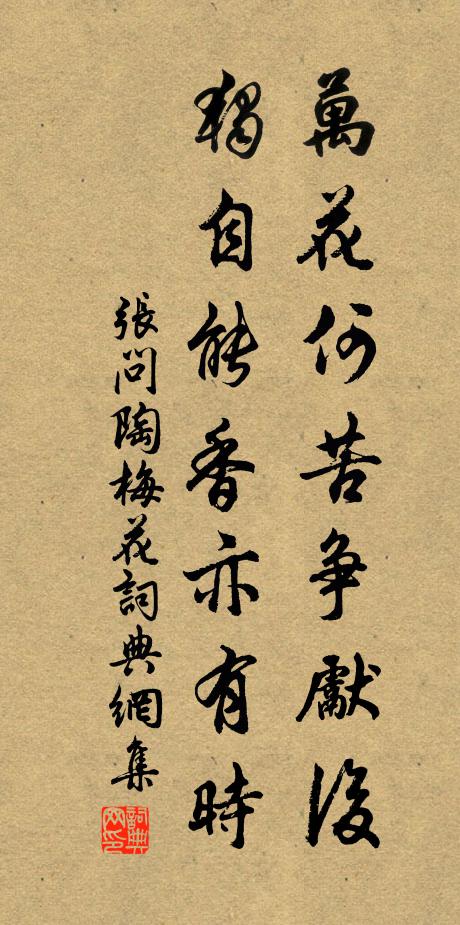 萬花何苦爭獻後
獨自能香亦有時
張問陶梅花詞典網集
詞典网印